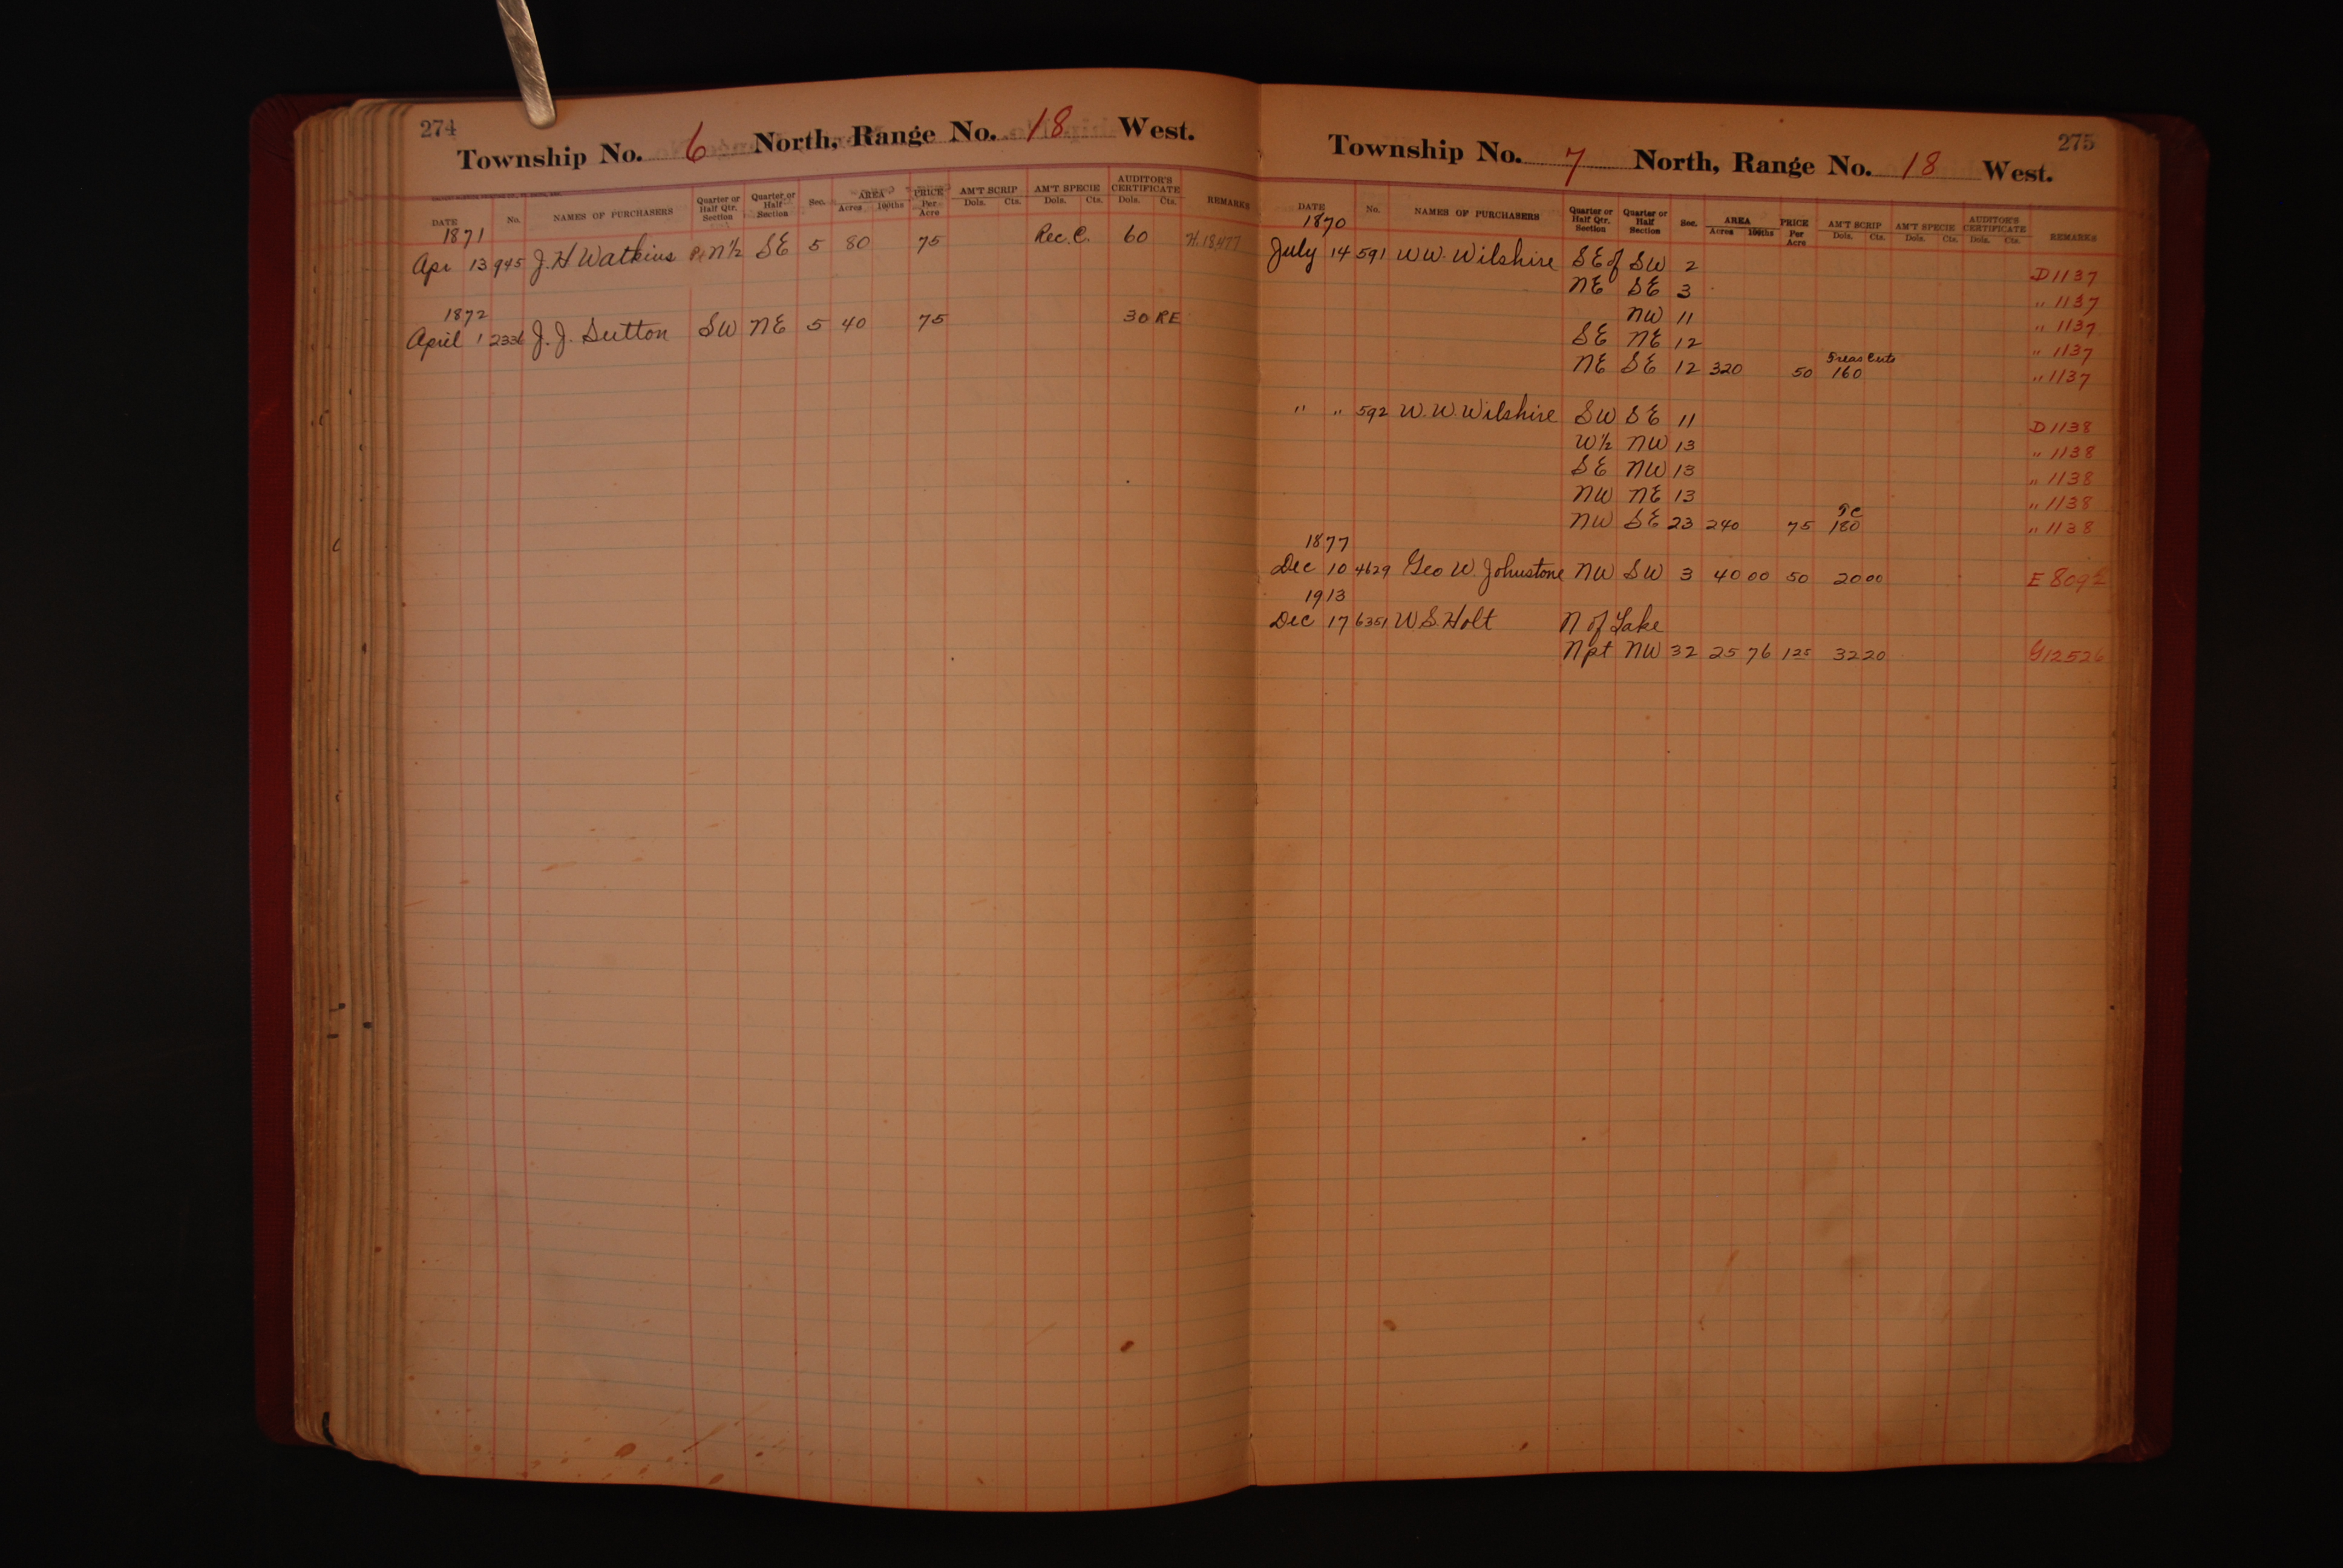 274
Township No. 6 North, Range No. 18 West.
DATE No. NAMES OF PURCHASERS Quarter or Half Qtr. Section Quarter or Half Section Sec. AREA Acres 100ths PRICE Per Acre AM'T SCRIP Dols. Cts. AM'T SPECIE Dols. Cts. AUDITOR'S CERTIFICATE Dols. Cts. REMARKS
1871
Apr 13 945 J. H Watkins N½ SE 5 80 75 Rec. C. 60 H. 18477
1872
April 1 J. J. Sutton SW NE 5 40 75 30 RE
275
Township No. 7 North, Range No. 18 West.
DATE No. NAMES OF PURCHASERS Quarter or Half Qtr. Section Quarter or Half Section Sec. AREA Acres 100ths PRICE Per Acre AM'T SCRIP Dols. Cts. AM'T SPECIE Dols. Cts. AUDITOR'S CERTIFICATE Dols. Cts. REMARKS
1870
July 14 591 W W. Wilshire SE of SW 2 D 1137
NE SE 3 " 1137
NW 11 " 1137
SE NE 12 " 1137
Treas Certs
NE SE 12 320 50 160 " 1137
" " 592 W. W. Wilshire SW SE 11 D 1138
W½ NW 13 " 1138
SE NW 13 " 1138
NW NE 13 " 1138
TC
NW SE 23 240 75 180 " 1138
1877
Dec 10 4629 Geo W. Johnstone NW SW 3 40 00 50 20 00 E
1913
Dec 17 6351 W S. Holt N of Lake
N pt NW 32 25 76 1 25 32 20 G12526